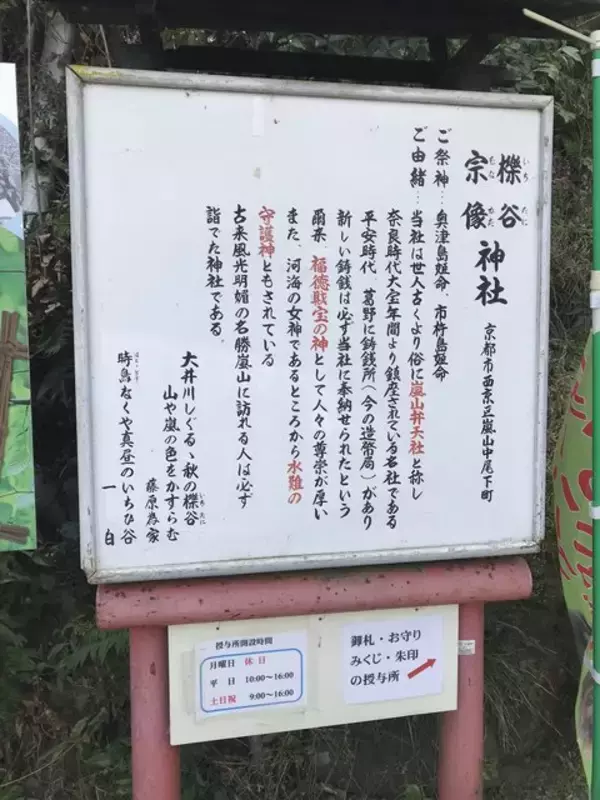 櫟谷
いち たに
宗像
むな かた
神社
京都市西京区嵐山中尾下町
ご祭神…奥津島姫命、市杵島姫命
ご由緒…当社は世人古くより俗に嵐山弁天社と称し
奈良時代大宝年間より鎮座されている名社である
平安時代 葛野に鋳銭所(今の造幣局)があり
新しい鋳銭は必ず当社に奉納せられたという
爾来、福徳財宝の神として人々の尊崇が厚い
また、河海の女神であるところから水難の
守護神ともされている
古来風光明媚の名勝嵐山に訪れる人は必ず
詣でた神社である。
大井川しぐるゝ秋の櫟谷
いち たに
山や嵐の色をかすらむ
藤原為家
時鳥なくや真昼のいちひ谷
一白
授与所開設時間
月曜日 休日
平 日 10:00~16:00
土日祝 9:00~16:00
御札・お守り
みくじ・朱印
の授与所